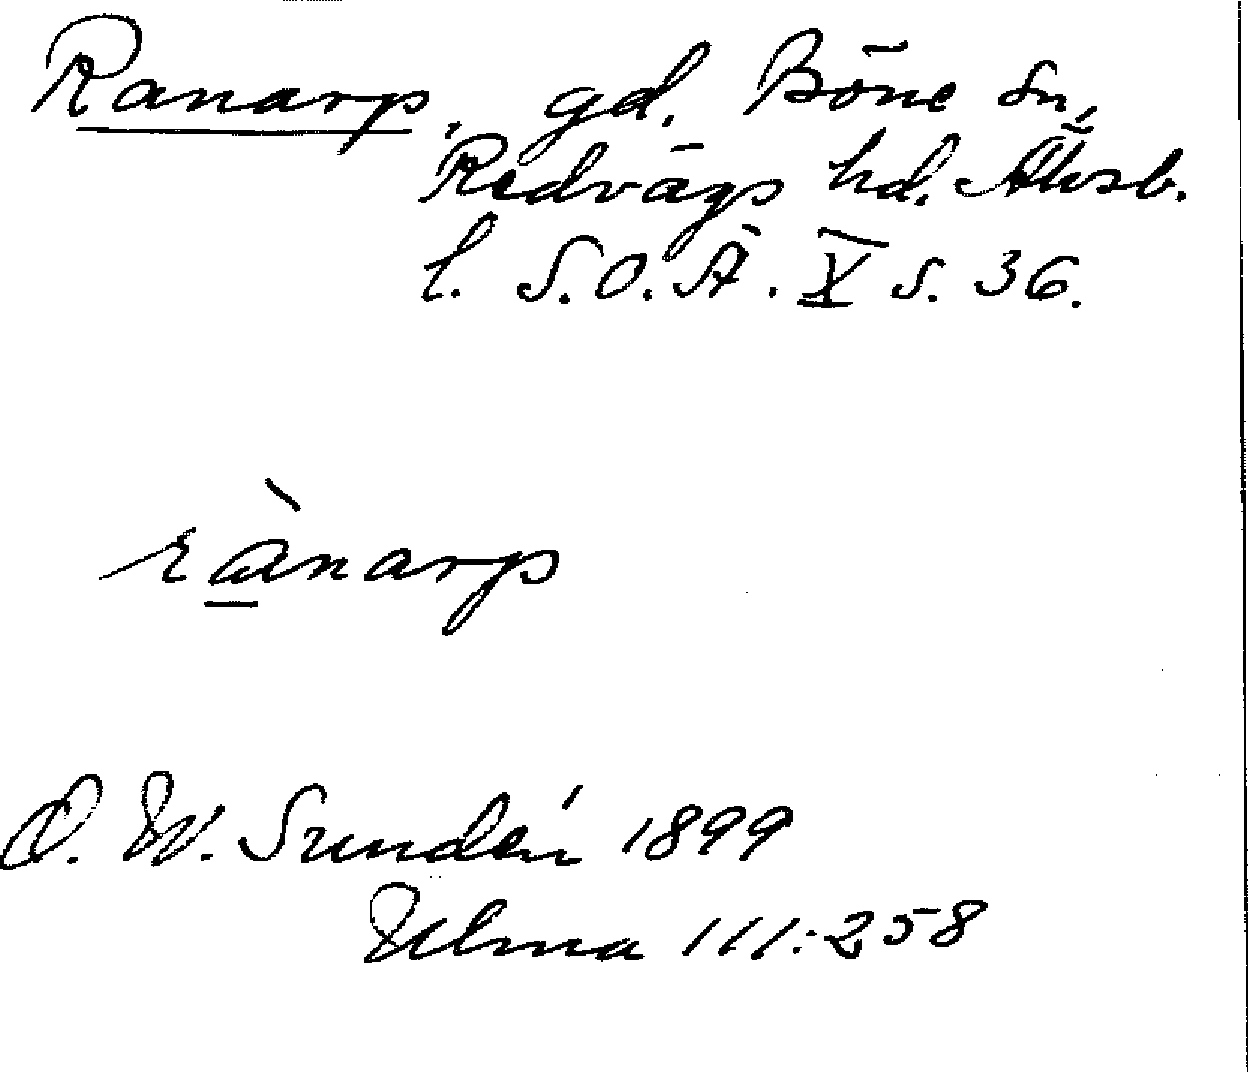 Ranarp, gd. Böne sn,
Redvägs hd. Älvsb.
l. S.O.Ä. X s. 36.
rànarp
D. W. Sundén 1899
Ulma 111:258